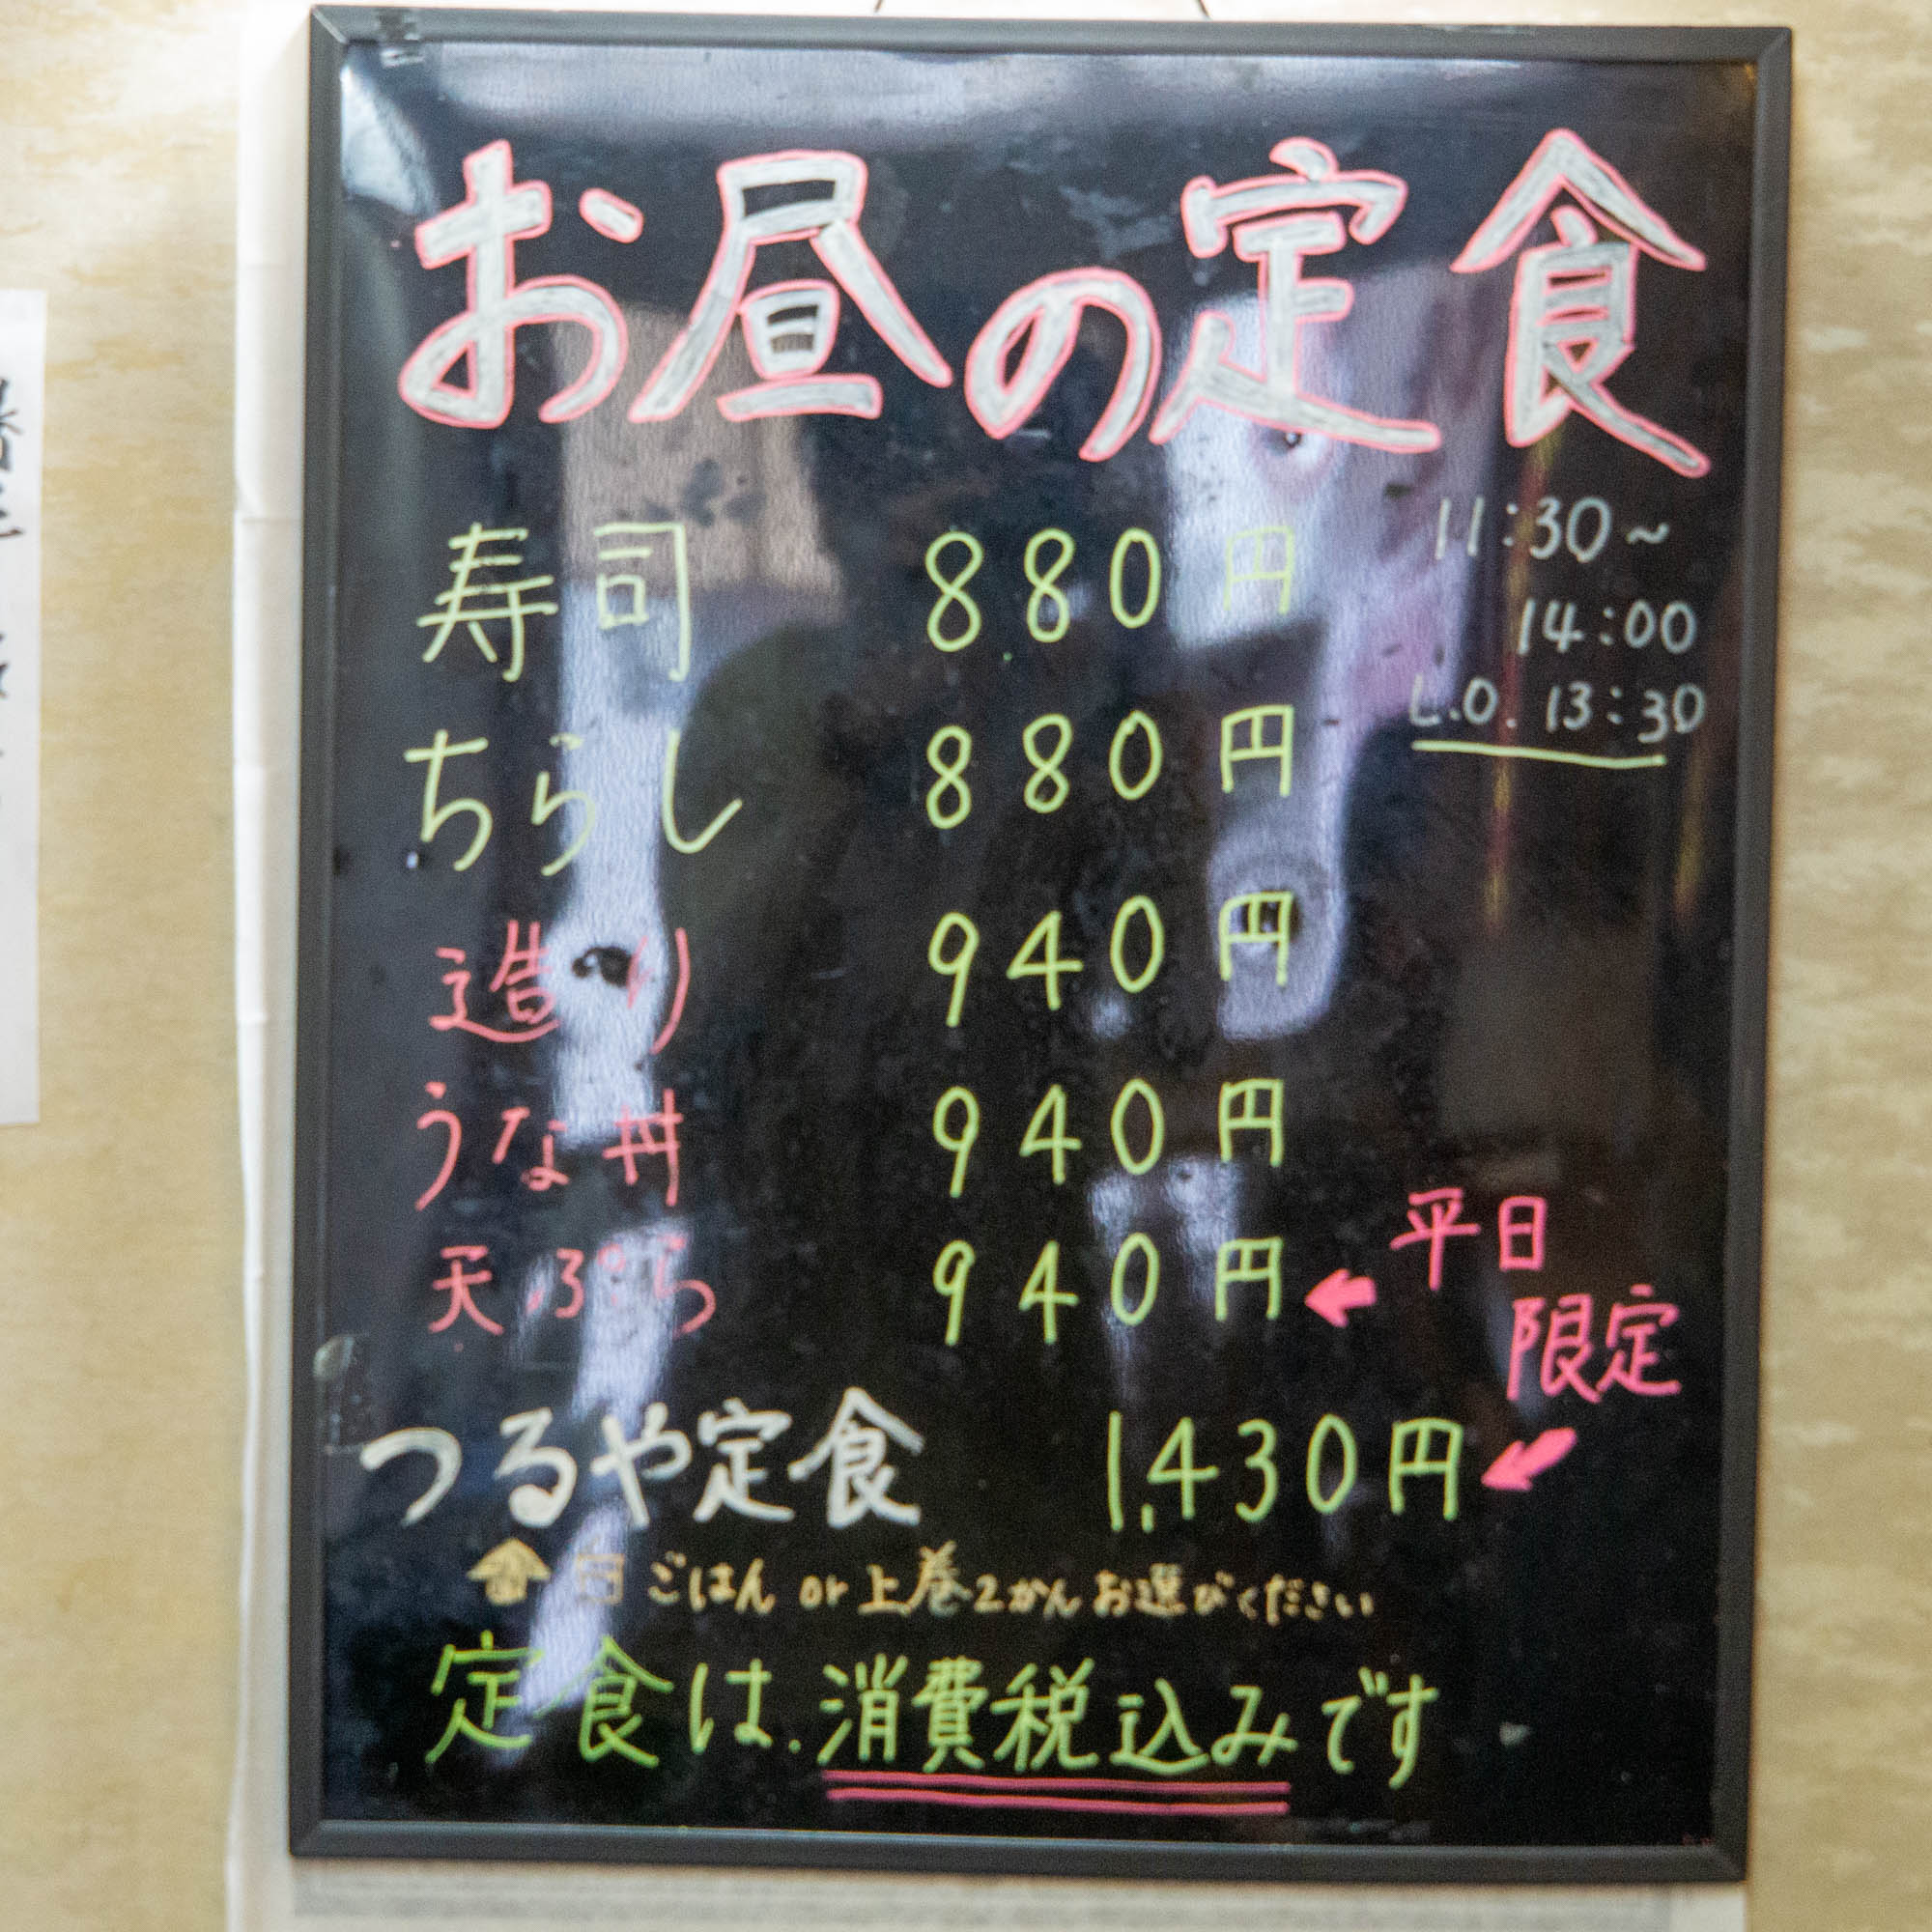 お昼の定食
11:30~
14:00
L.O. 13:30
寿司 880円
ちらし 880円
造り 940円
うな丼 940円
天ぷら 940円
平日
限定
つるや定食 1,430円
ごはん or 上巻2かんお選びください
定食は.消費税込みです